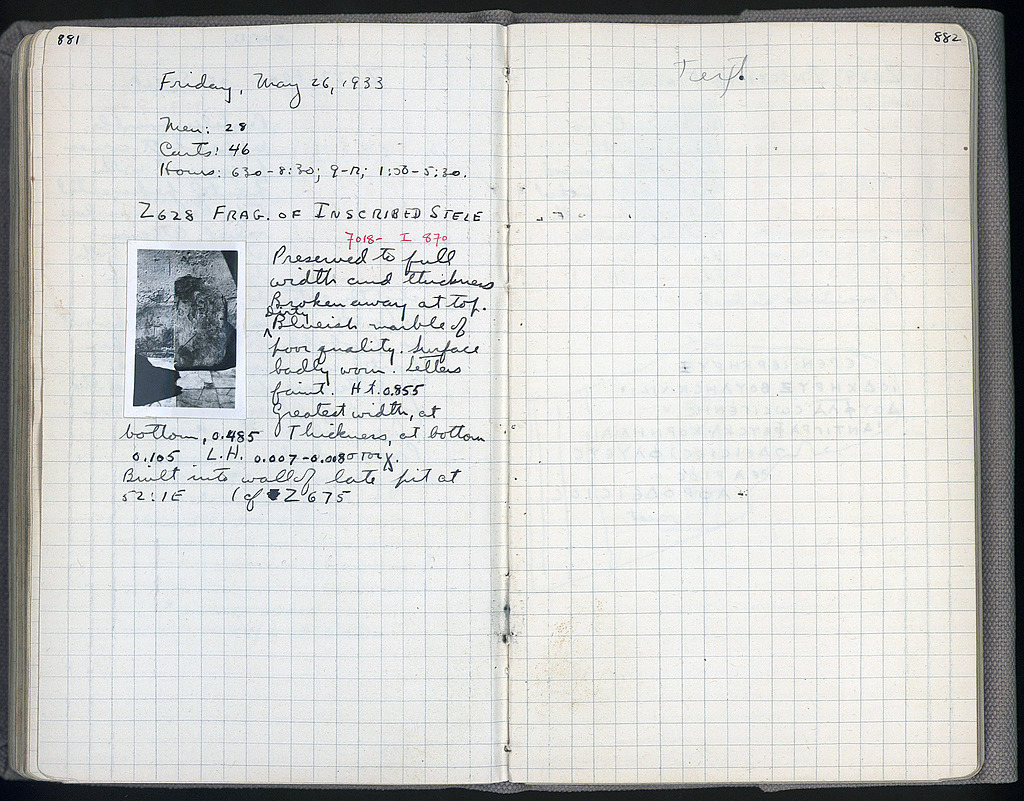 881
Friday, May 26, 1933
Men: 28
Carts: 46
Hours: 630-8:30; 9-12; 1:00-5:30.
Z628 FRAG. OF INSCRIBED STELE
7018- I 870
Preserved to full
width and thickness
Broken away at top.
Dirty
Blueish marble of
poor quality. Surface
badly worn. Letters
faint. Ht. 0.855
Greatest width, at
bottom, 0.485 Thickness, at bottom
0.105 L.H. 0.007-0.008
Built into wall of late pit at
52:IE (cf Z675
882
Text.